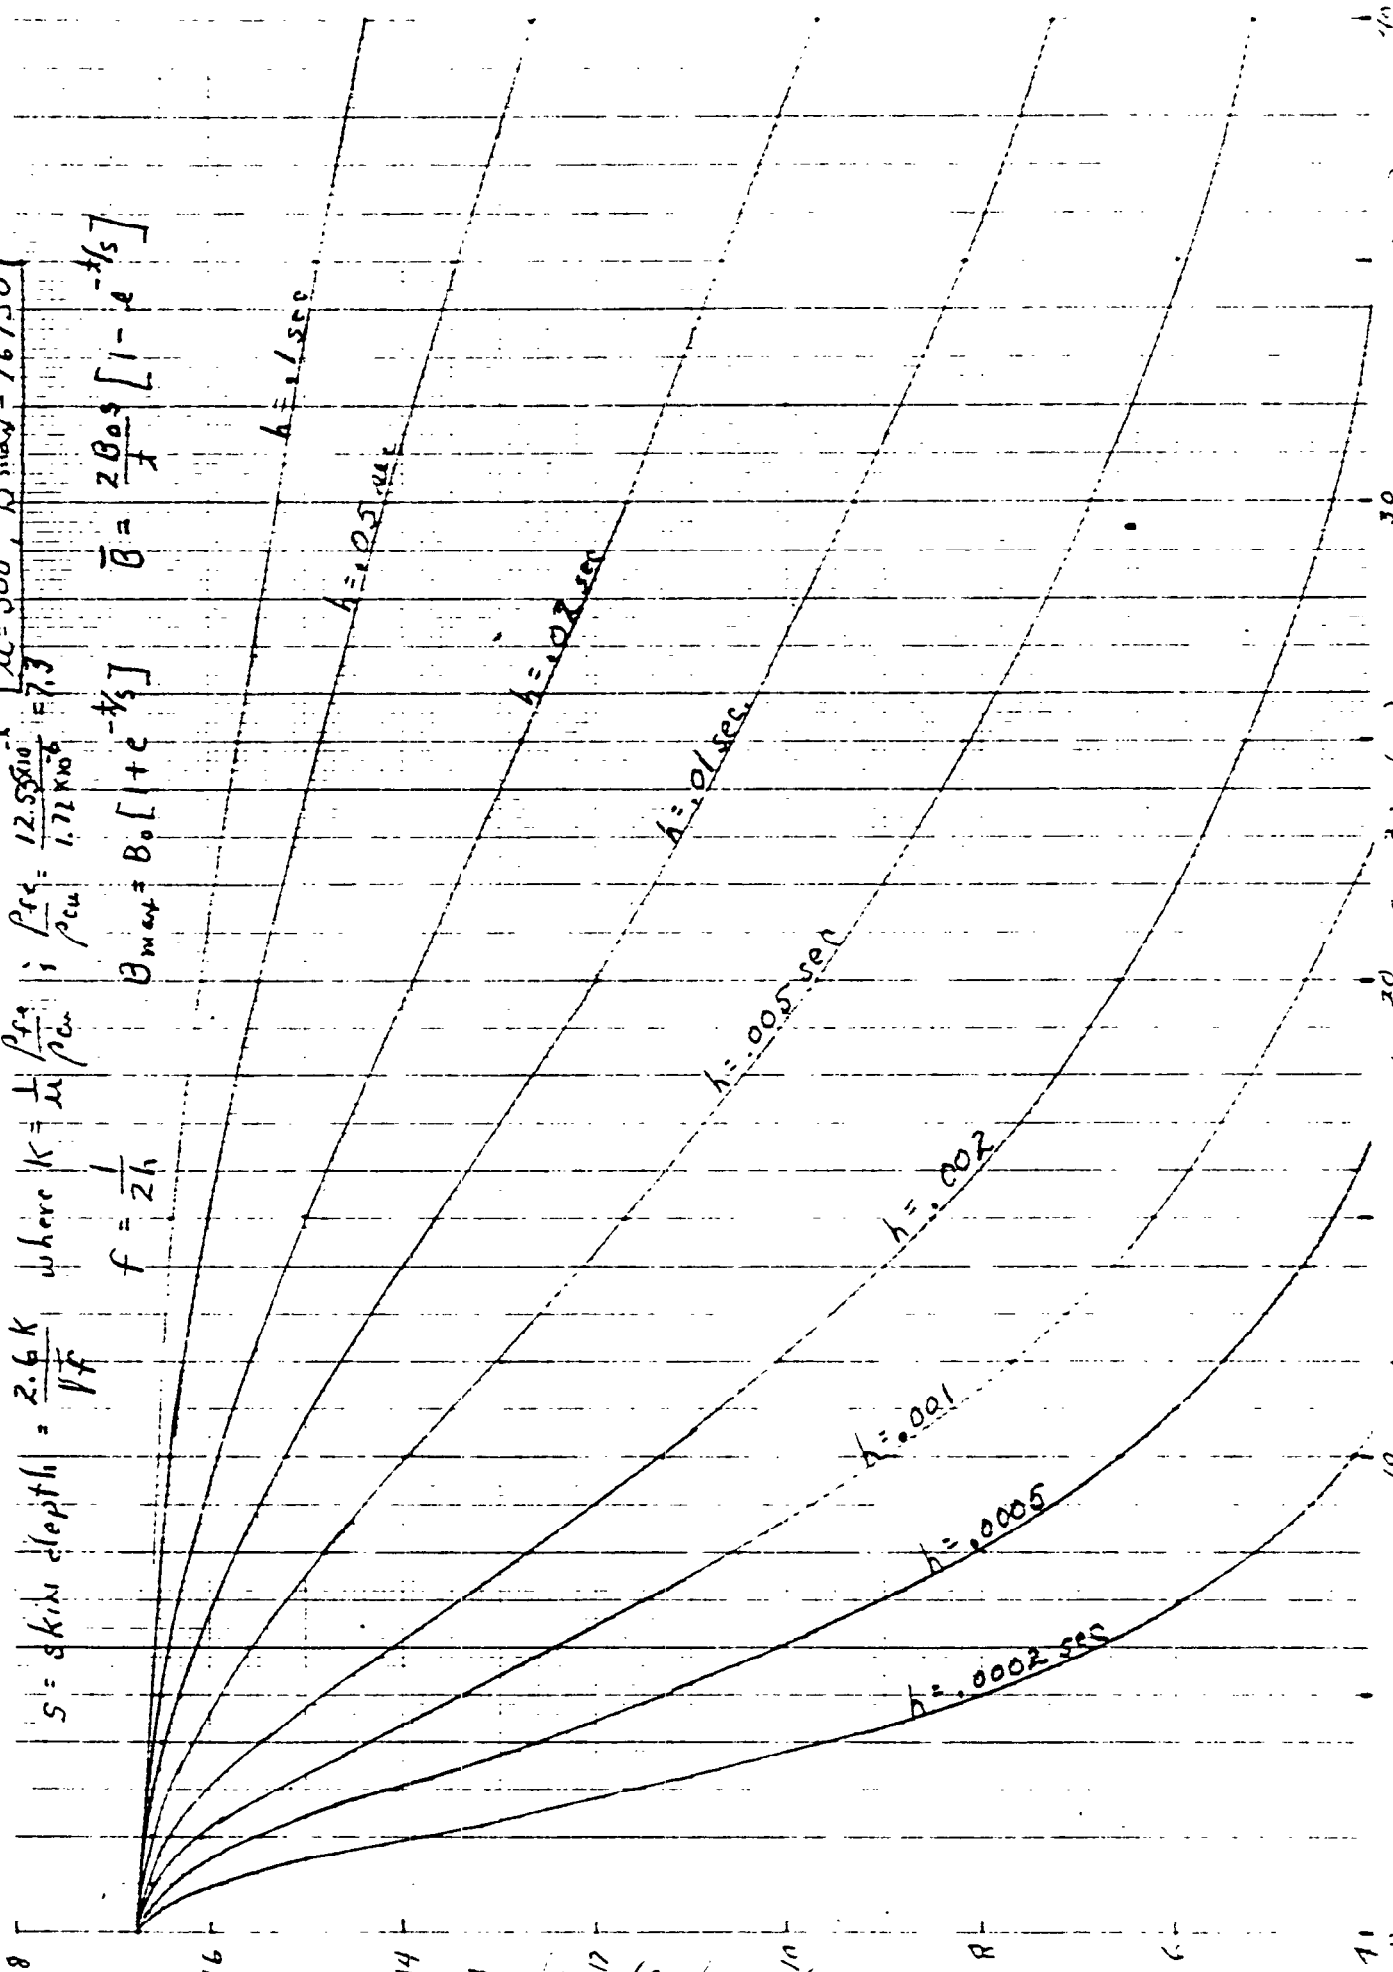 S = skin depth = 2.6 K / √f where K = 1/μ ρfe/ρcu ; ρfe/ρcu = 12.55x10⁻⁶ / 1.72 x10⁻⁶ = 7.3
f = 1/2h
Bmax = B₀ [1 + e^-t/s]
B̄ = 2B₀s/t [1 - e^-t/s]
h = .1 sec
h = .05 sec
h = .02 sec
h = .01 sec.
h = .005 sec
h = .002
h = .001
h = .0005
h = .0002 sec
8
16
14
12
10
8
6
10
20
30
40